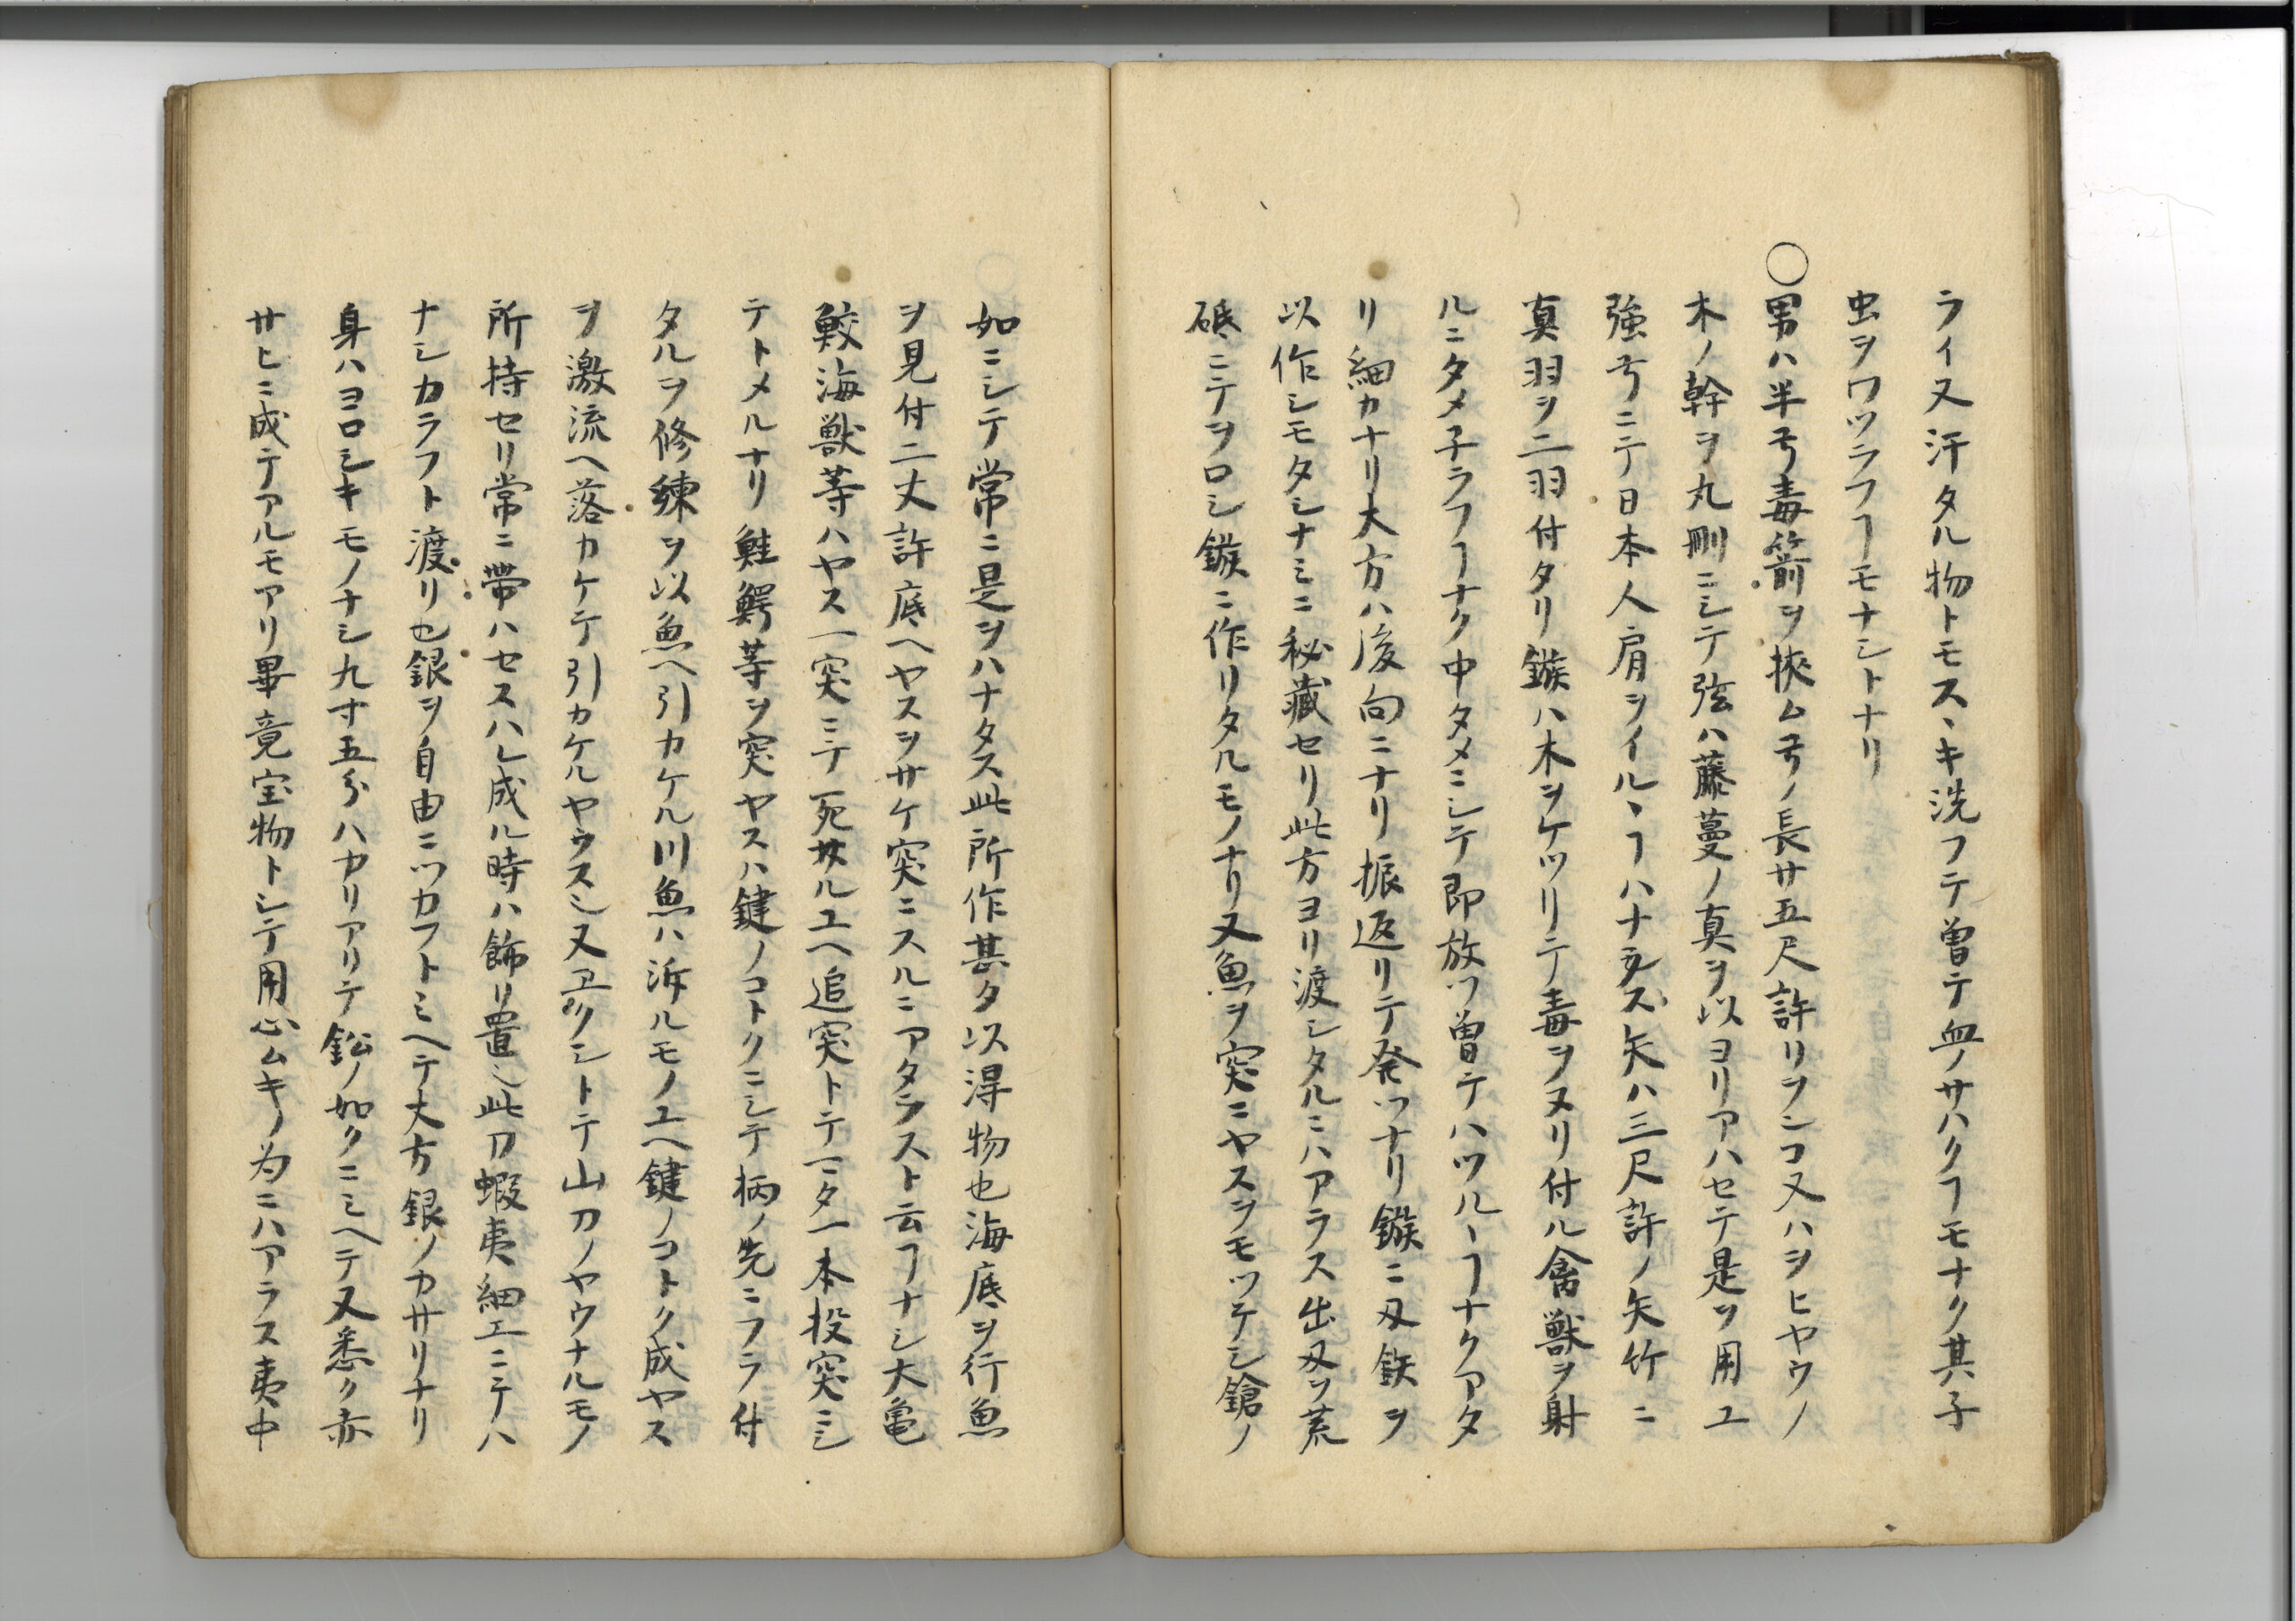 ライ又汗タル物トモスヽキ洗フテ曽テ血ノサハクヿモナク其子
虫ヲワツラフヿモナシトナリ
○男ハ半弓毒箭ヲ挾ム弓ノ長サ五尺許リヲンコ又ハヲヒヤウノ
木ノ幹ヲ丸剛ニシテ弦ハ藤蔓ノ真ヲ以ヨリアハセテ是ヲ用ユ
強弓ニテ日本人肩ヲイルヽヿハナラズ矢ハ三尺許ノ矢竹ニ
真羽ヲ二羽付タリ鏃ハ木ヲケツリテ毒ヲヌリ付ル禽獣ヲ射
ルニタメ子ラフヿナク中タメニシテ即放ツ曽テハツルヽヿナクアタ
リ細カナリ大方ハ後向ニナリ振返リテ発ツナリ鏃ニ刄鉄ヲ
以作シモタシナミニ秘蔵セリ此方ヨリ渡シタルニハアラス出刄ヲ荒
砥ニテヲロシ鏃ニ作リタルモノナリ又魚ヲ突ニヤスヲモツテシ鎗ノ
如ニシテ常ニ是ヲハナタス此所作甚タ以得物也海底ヲ行魚
ヲ見付二丈許底ヘヤスヲサケ突ニスルニアタラスト云ヿナシ大亀
鮫海獣等ハヤス一突ニテ死サルユヘ追突トテ一タ一本投突ニシ
テトメルナリ鮭鰐等ヲ突ヤスハ鍵ノコトクニシテ柄ノ先ニフラ付
タルヲ修練ヲ以魚ヘ引カケル川魚ハ泝ルモノユヘ鍵ノコトク成ヤス
ヲ激流ヘ落カケテ引カケルヤウスシ又ヱリシトテ山刀ノヤウナルモノ
所持セリ常ニ帶ハセスハレ成ル時ハ飾リ置シ此刀蝦夷細工ニテハ
ナシカラフト渡リ也銀ヲ自由ニツカフトミヘテ大方銀ノカサリナリ
身ハヨロシキモノナシ九寸五分ハカリアリテ鈆ノ如クニミヘテ又悉ク赤
サヒニ成テアルモアリ畢竟宝物トシテ用心ムキノ为ニハアラス夷中